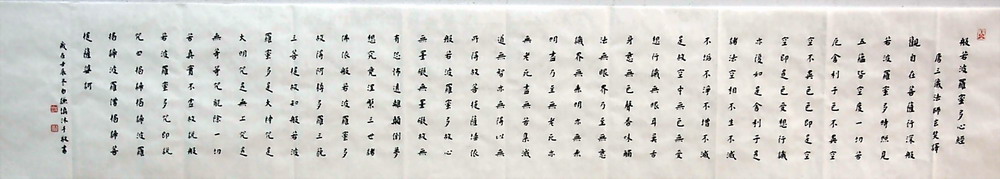 般若波羅蜜多心經
唐三藏法師玄奘譯
觀自在菩薩行深般
若波羅蜜多時照見
五蘊皆空度一切苦
厄舍利子色不異空
空不異色色即是空
空即是色受想行識
亦復如是舍利子是
諸法空相不生不滅
不垢不淨不增不減
是故空中無色無受
想行識無眼耳鼻舌
身意無色聲香味觸
法無眼界乃至無意
識界無無明亦無無
明盡乃至無老死亦
無老死盡無苦集滅
道無智亦無得以無
所得故菩提薩埵依
般若波羅蜜多故心
無罣礙無罣礙故無
有恐怖遠離顛倒夢
想究竟涅槃三世諸
佛依般若波羅蜜多
故得阿耨多羅三藐
三菩提故知般若波
羅蜜多是大神咒是
大明咒是無上咒是
無等等咒能除一切
苦真實不虛故說般
若波羅蜜多咒即說
咒曰揭諦揭諦波羅
揭諦波羅僧揭諦菩
提薩婆訶
歲在壬辰冬沐手敬書